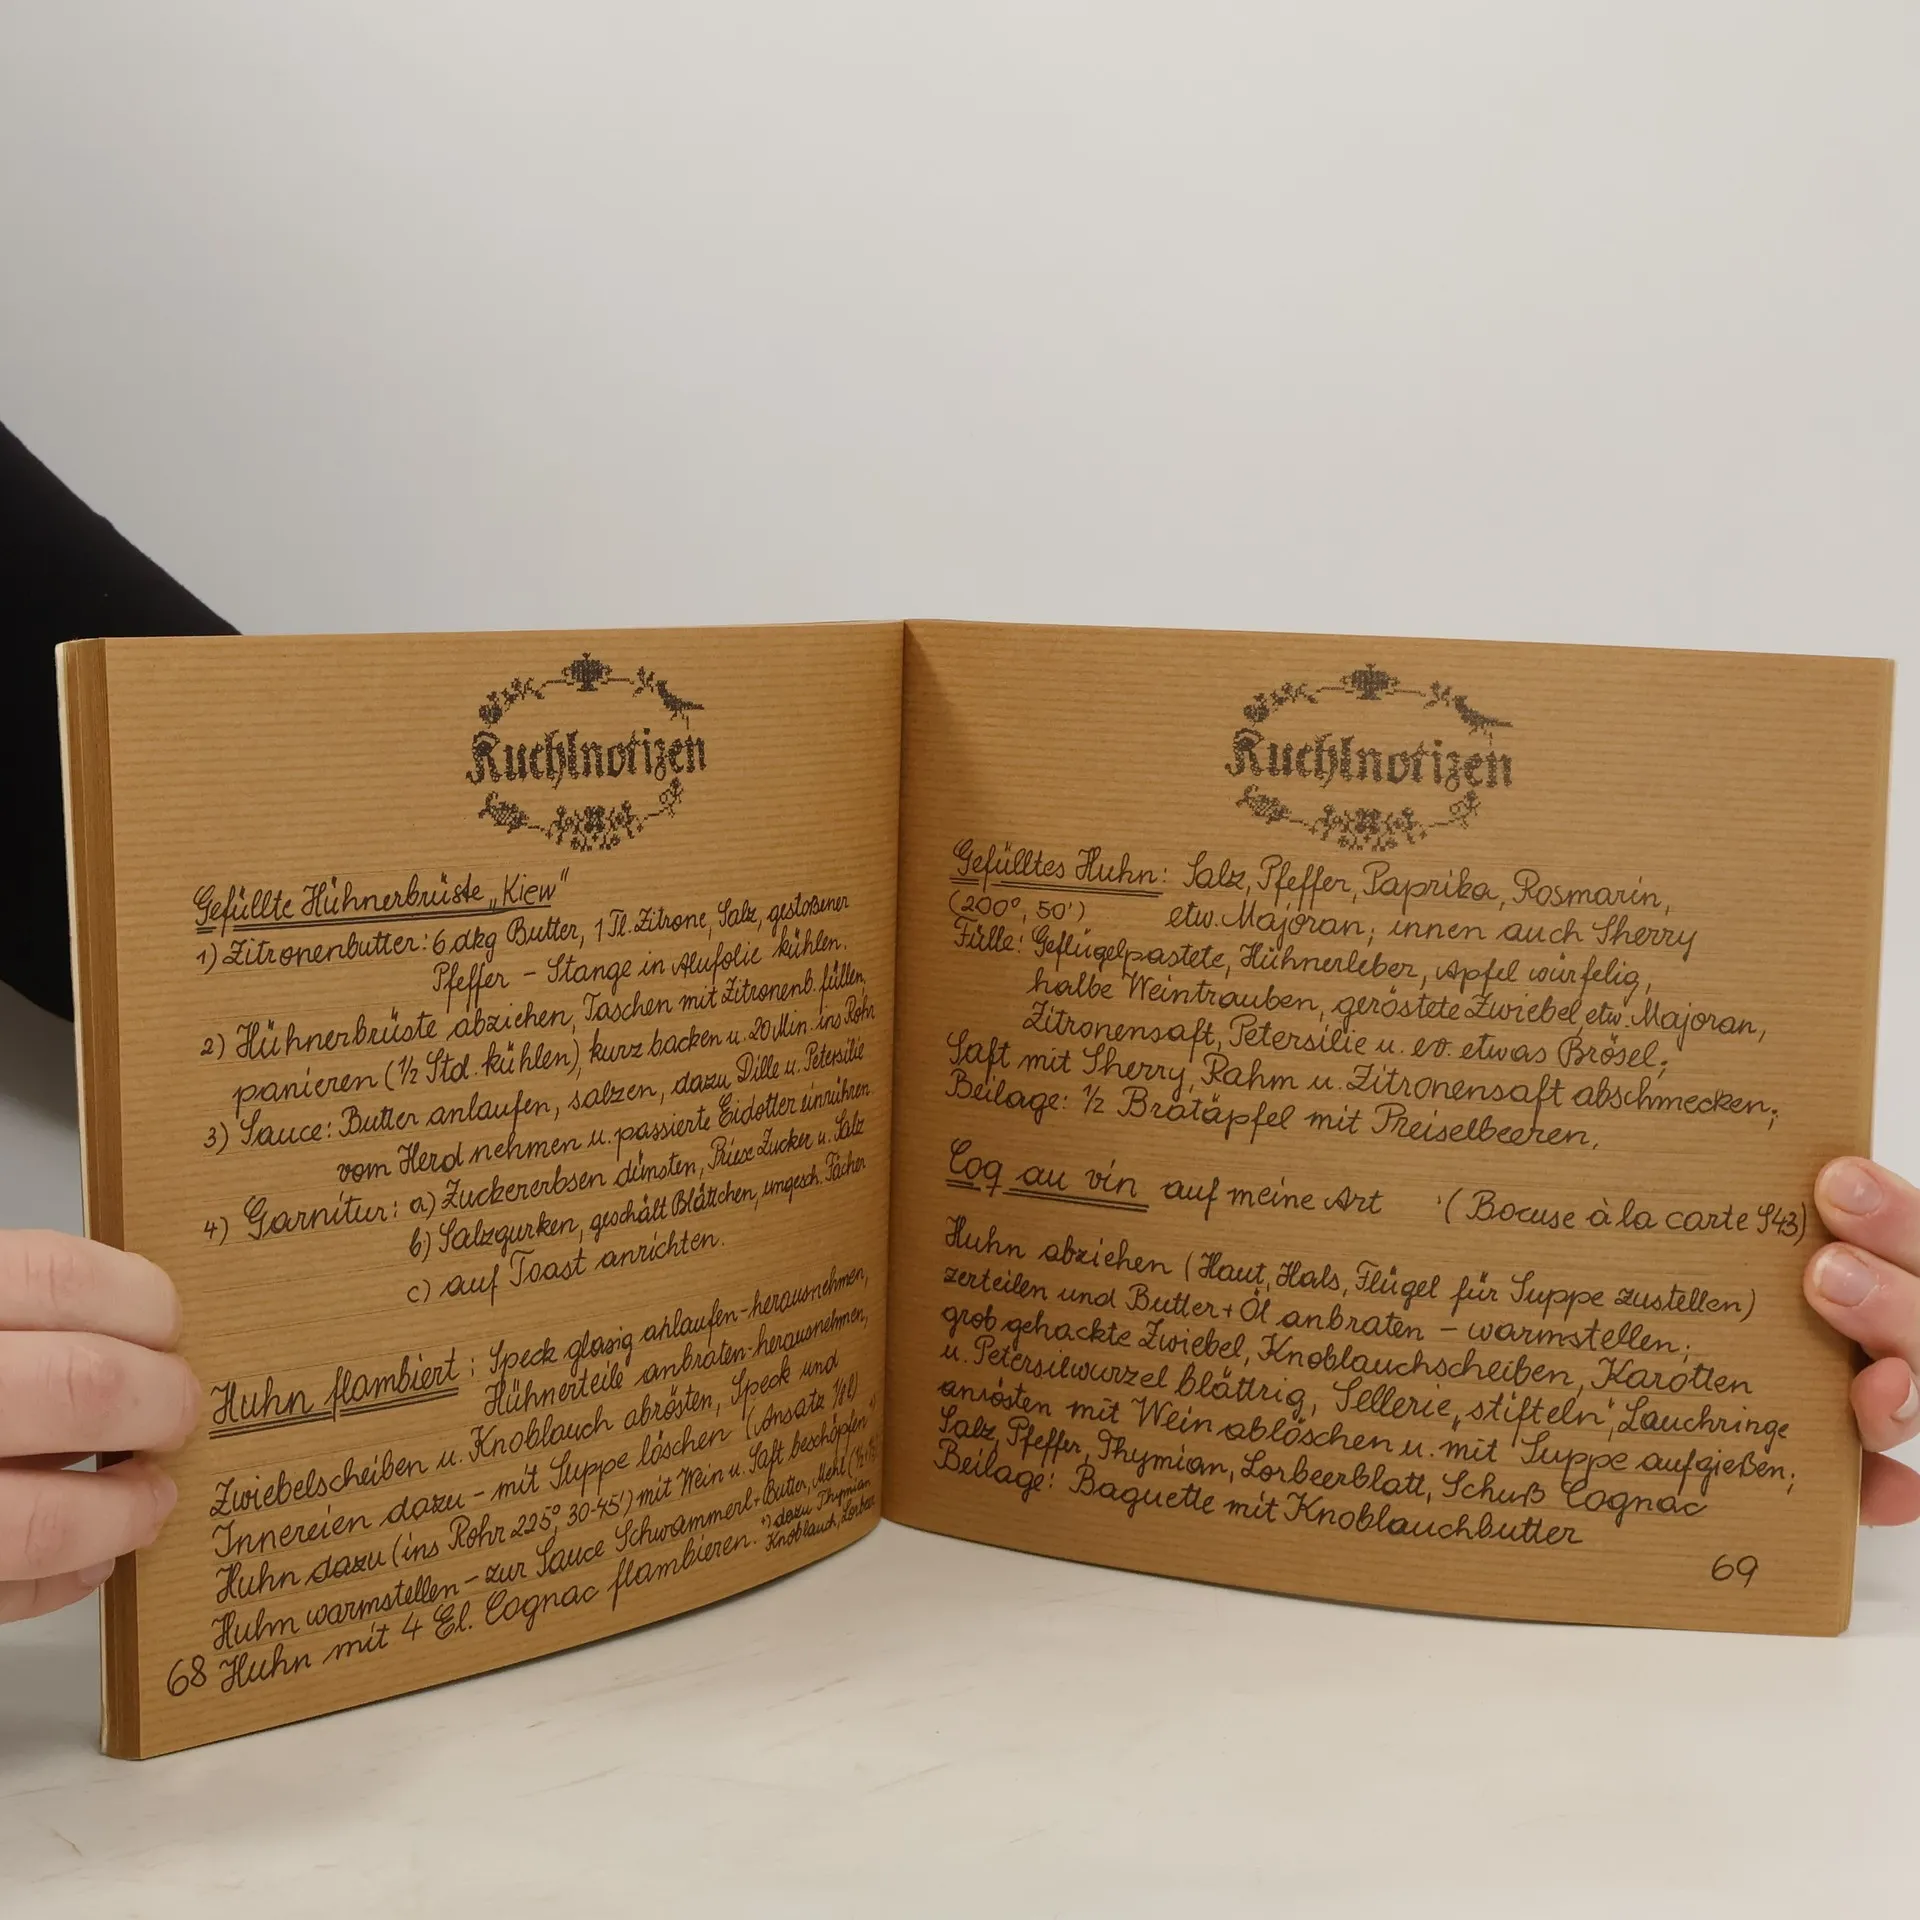 Kuchlnotizen
Gefüllte Hühnerbrüste „Kiew“
1) Zitronenbutter: 6 dkg Butter, 1 Tl. Zitrone, Salz, gestoßener
Pfeffer – Stange in Alufolie kühlen.
2) Hühnerbrüste abziehen, Taschen mit Zitronenb. füllen,
panieren (½ Std. kühlen), kurz backen u. 20 Min. ins Rohr
3) Sauce: Butter anlaufen, salzen, dazu Dille u. Petersilie
vom Herd nehmen u. passierte Eidotter einrühren
4) Garnitur: a) Zuckererbsen dünsten, Prise Zucker u. Salz
b) Salzgurken, geschält Blättchen, ungesch. Fächer
c) auf Toast anrichten.
Huhn flambiert: Speck glasig anlaufen-herausnehmen,
Hühnerteile anbraten-herausnehmen,
Zwiebelscheiben u. Knoblauch abrösten, Speck und
Innereien dazu – mit Suppe löschen (Ansatz 1/8 l)
Huhn dazu (ins Rohr 225°, 30-45') mit Wein u. Saft beschöpfen *)
Huhn warmstellen – zur Sauce Schwammerl + Butter, Mehl
Huhn mit 4 El. Cognac flambieren.
*) dazu Thymian
Knoblauch, Lorbeer
68
Kuchlnotizen
Gefülltes Huhn: Salz, Pfeffer, Paprika, Rosmarin,
(200°, 50') etw. Majoran; innen auch Sherry
Fülle: Geflügelpastete, Hühnerleber, Apfel würfelig,
halbe Weintrauben, geröstete Zwiebel, etw. Majoran,
Zitronensaft, Petersilie u. ev. etwas Brösel;
Saft mit Sherry, Rahm u. Zitronensaft abschmecken;
Beilage: ½ Bratäpfel mit Preiselbeeren.
Coq au vin auf meine Art (Bocuse à la carte S43)
Huhn abziehen (Haut, Hals, Flügel für Suppe zustellen)
zerteilen und Butter + Öl anbraten – warmstellen;
grob gehackte Zwiebel, Knoblauchscheiben, Karotten
u. Petersilwurzel blättrig, Sellerie „stifteln“, Lauchringe
anrösten mit Wein ablöschen u. mit Suppe aufgießen;
Salz, Pfeffer, Thymian, Lorbeerblatt, Schuß Cognac
Beilage: Baguette mit Knoblauchbutter
69